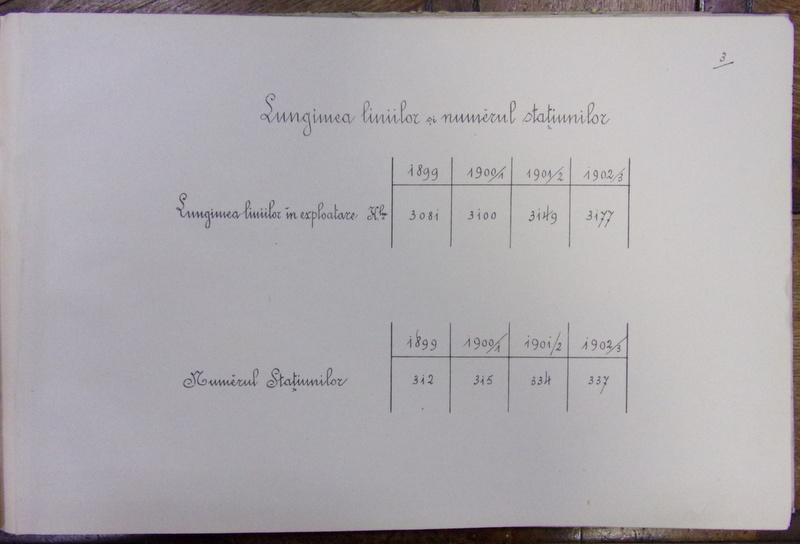 3
Lungimea liniilor și numĕrul stațiunilor
1899 1900/1 1901/2 1902/3
Lungimea liniilor în exploatare 3081 3100 3149 3177
1899 1900/1 1901/2 1902/3
Numĕrul Stațiunilor 312 315 334 337